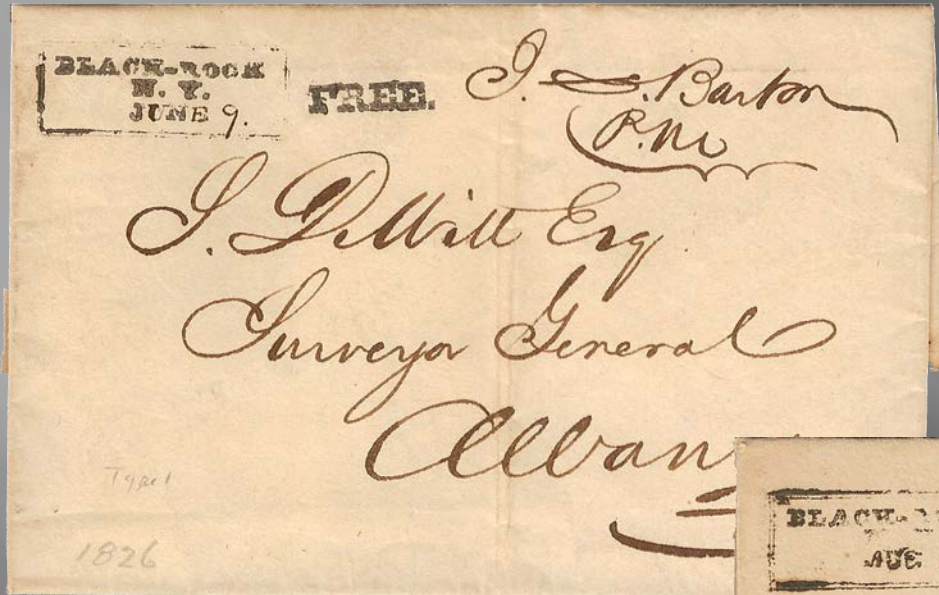 BLACK-ROCK
N. Y.
JUNE 9.
FREE.
J. Barton
P.M
S. DeWitt Esq
Surveyor General
Albany
Type I
1826
BLACK-R
AUG